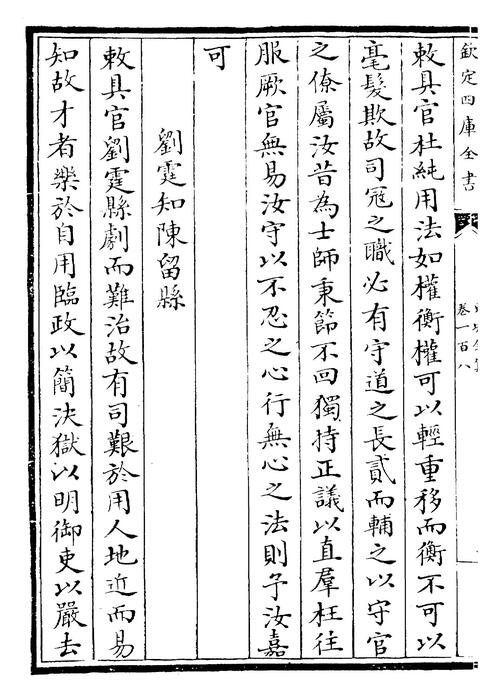 欽定四庫全書
卷一百八
敕具官杜純用法如權衡權可以輕重移而衡不可以
毫髮欺故司冦之職必有守道之長貳而輔之以守官
之僚屬汝昔為士師秉節不回獨持正議以直羣枉往
服厥官無易汝守以不忍之心行無心之法則予汝嘉
可
劉霆知陳留縣
敕具官劉霆縣劇而難治故有司艱於用人地近而易
知故才者樂於自用臨政以簡決獄以明御吏以嚴去